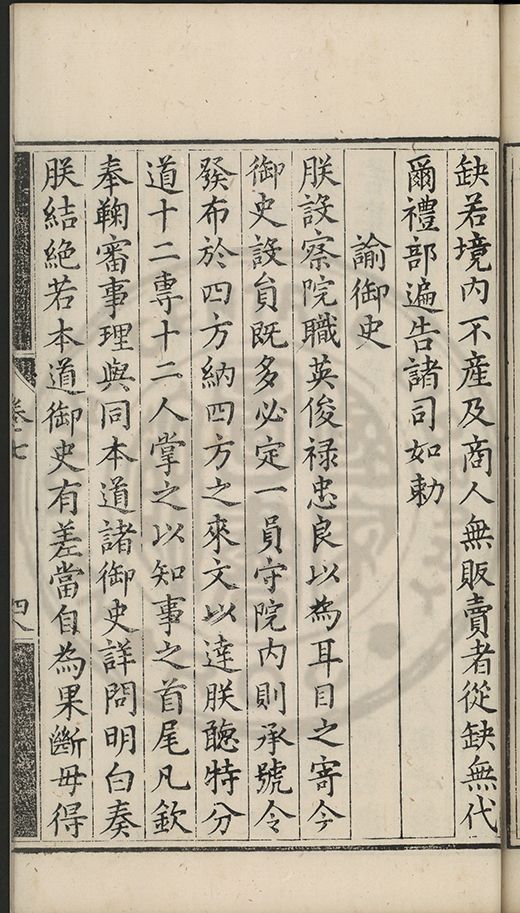 缺若境内不産及商人無販賣者從缺無代
爾禮部遍告諸司如勅
諭御史
朕設察院職英俊禄忠良以為耳目之寄今
御史設負既多必定一員守院内則承號令
發布於四方納四方之來文以達朕聰特分
道十二專十二人掌之以知事之首尾凡欽
奉鞠審事理與同本道諸御史詳問明白奏
朕結絶若本道御史有差當自為果斷毋得
卷七
四